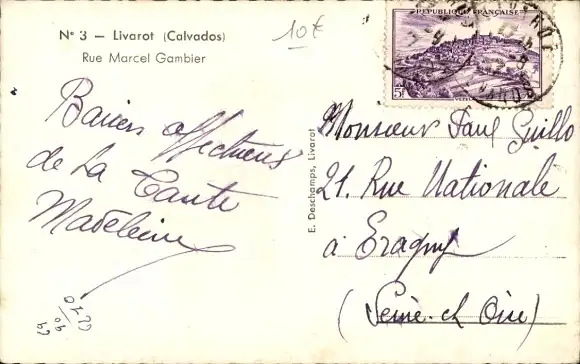 N° 3 — Livarot (Calvados)
Rue Marcel Gambier
10€
RÉPUBLIQUE FRANÇAISE
5F
Baisers affectueux
de La Tante
Madeleine
E. Deschamps, Livarot
Monsieur Paul Guillo
21. Rue Nationale
à Eragny
(Seine et Oise)